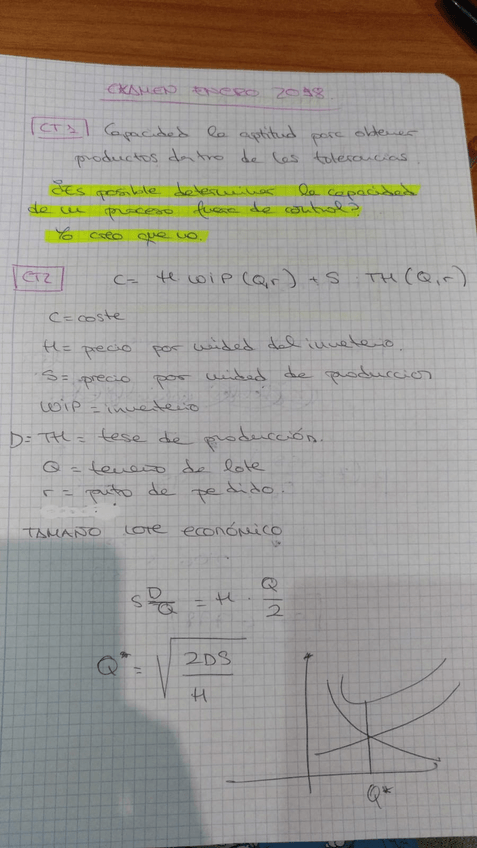 EXAMEN ENERO 2018
CT1 Capacidad la aptitud para obtener
productos dentro de las tolerancias.
¿Es posible determinar la capacidad
de un proceso fuera de control?
Yo creo que no.
CT2 C = H WIP (Q,r) + S TH (Q,r)
C = coste
H = precio por unidad del inventario.
S = precio por unidad de produccion
WIP = inventario
D = TH = tasa de producción.
Q = tamaño de lote
r = punto de pedido.
TAMAÑO LOTE ECONÓMICO
S D/Q = H · Q/2
Q* = √(2DS/H)
Q*